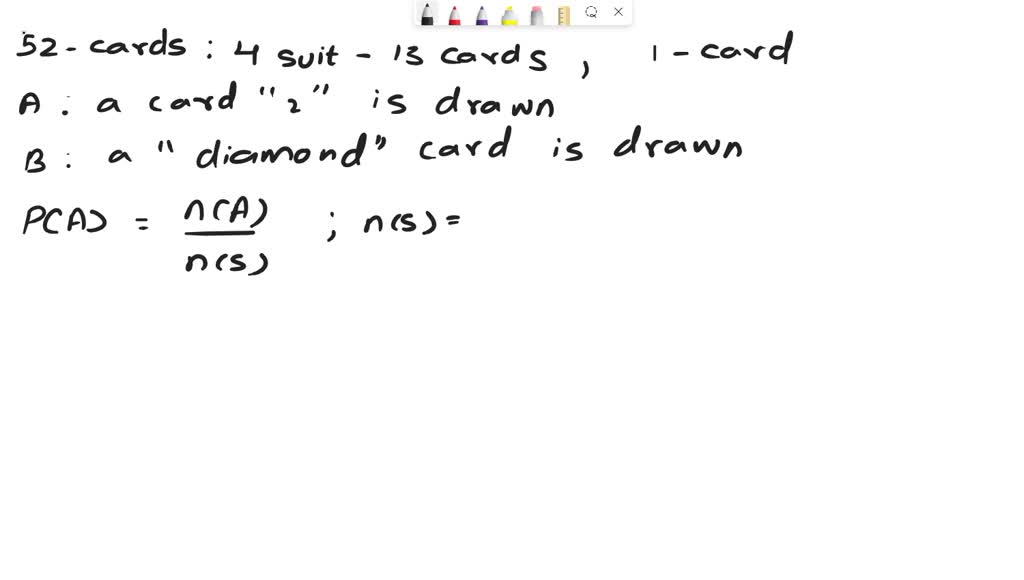 52 - cards : 4 suit - 13 cards , 1 - card
A : a card "2" is drawn
B : a "diamond" card is drawn
P(A) = n(A) / n(s) ; n(s) =